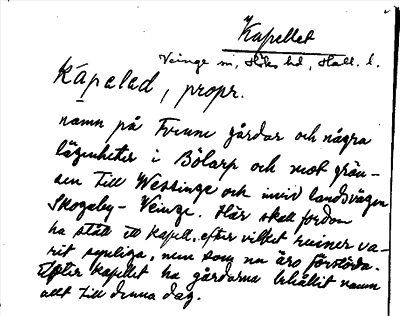 Kapellet
Veinge sn, Höks hd, Hall. l.
Kapeled, propr.
namn på tvenne gårdar och några
lägenheter i Bölarp och mot grän-
sen till Wessinge och invid landsvägen
Skogaby - Veinge. Här skall fordom
ha stått ett kapell, efter vilket ruiner va-
rit synliga, men som nu äro förstörda.
Efter kapellet ha gårdarna behållit namn
allt till denna dag.